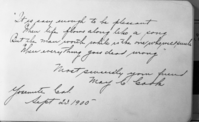 "It is easy enough to be pleasant
When life flows along like a song
But the man worth while is the one who can smile
When everything goes dead wrong"
Most sincerely your friend
May C. Cook
Yosemite Cal
Sept 23 1905